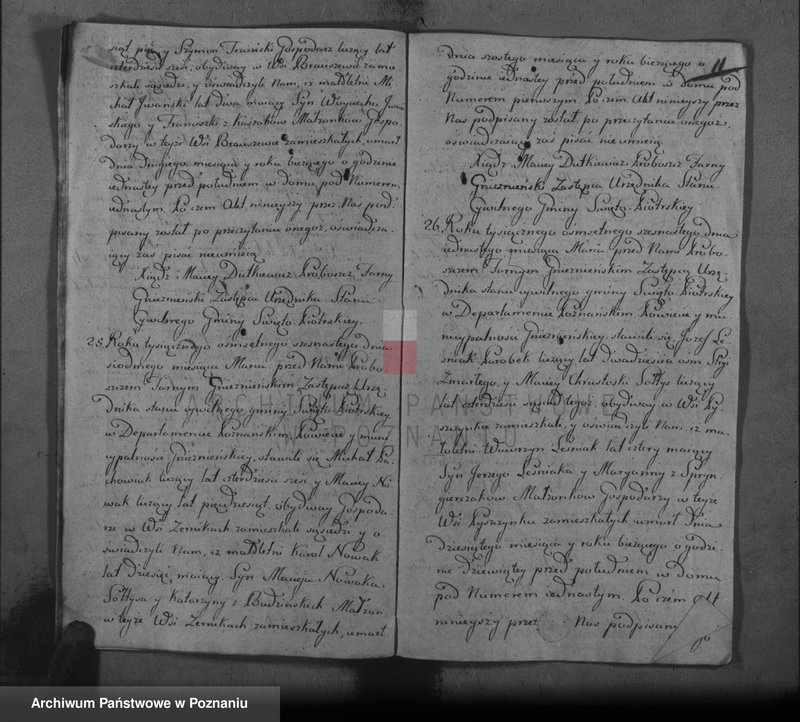 nąt pięć y Szymon Trzuński Gospodarz liczący lat
czterdzieści sześć, obydway w Wsi Braciszewie zamie
szkali sąsiedzi, y oświadczyli Nam, iż małoletni Mi
chał Iwański lat dwa maiący Syn Woyciecha Iwań
skiego y Franciszki z Małżonkow Gospo
darzy w teyże Wsi Braciszewie zamieszkałych, umarł
dnia drugiego miesiąca y roku bieżącego o godzinie
iednastey przed południem w domu pod Numerem
iednastym. Po czem Akt ninieyszy przez Nas pod
pisany został po przeczytaniu onegoż, oświadcza
iący zas pisać nieumieią
Xiądz Maciey Dutkiewicz Proboszcz Farny
Gnieznieński Zastępca Urzędnika Stanu
Cywilnego Gminy Święto Piotrskiey.
25. Roku tysiącznego osmsetnego szesnastego dnia
siodmego miesiąca Marca przed Nami Probo
szczem Farnym Gnieznieńskim Zastępcą Urzę
dnika stanu cywilnego gminy Święto Piotrskiey
w Departamencie Poznańskim Powiecie y muni
cypalności Gnieznieńskiey, stawili się Michał Pa
chowiak liczący lat czterdzieści sześć y Maciey No
wak liczący lat pięćdziesiąt, obydway Gospoda
rze w Wsi Zernikach zamieszkali sąsiedzi y o
świadczyli Nam, iż małoletni Karol Nowak
lat dziesięć maiący, Syn Macieja Nowaka
Sołtysa y Katarzyny z Budzińskich Małżon
w teyże Wsi Zernikach zamieszkałych, umarł
11
dnia szostego miesiąca y roku bieżącego o
godzinie iednastey przed południem w domu pod
Numerem pierwszym. Po czem Akt ninieyszy przez
Nas podpisany został po przeczytaniu onegoż,
oświadczaiący zas pisać nieumieią
Xiądz Maciey Dutkiewicz Proboszcz Farny
Gnieznieński Zastępca Urzędnika Stanu
Cywilnego Gminy Święto Piotrskiey
26. Roku tysiącznego osmsetnego szesnastego dnia
iednastego miesiąca Marca przed Nami Probo
szczem Farnym Gnieznieńskim Zastępcą Urzę
dnika stanu cywilnego gminy Święto Piotrskiey
w Departamencie Poznańskim Powiecie y mu
nicypalności Gnieznieńskiey, stawili się Jozef Le
śniak Parobek liczący lat dwadzieścia osm Stry
Zmarłego, y Maciey Chrustoski Sołtys liczący
lat czterdzieści sąsiad tegoż, obydway w Wsi Py
szczynku zamieszkali, y oświadczyli Nam, iż ma
łoletni Wawrzyn Leśniak lat cztery maiący
Syn Jerzego Leśniaka y Maryanny z Spryn
gierczakow Małżonkow Gospodarzy w teyże
Wsi Pyszczynku zamieszkałych umarł dnia
dziesiątego miesiąca y roku bieżącego o godzi
nie dziewiątey przed południem w domu
pod Numerem iednastym. Po czém Akt
ninieyszy przez Nas podpisany
ARCHIWUM PAŃSTWOWE
W POZNANIU
Archiwum Państwowe w Poznaniu